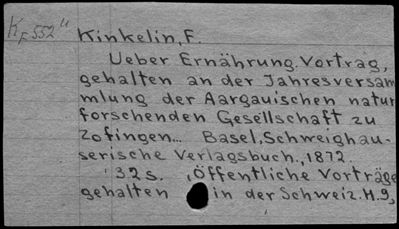 K F 552"
Kinkelin, F.
Ueber Ernährung. Vortrag,
gehalten an der Jahresversam
mlung der Aargauischen natur
forschenden Gesellschaft zu
Zofingen... Basel, Schweighau-
serische Verlagsbuch., 1872.
32 s. (Öffentliche Vorträge
gehalten in der Schweiz. H.9,